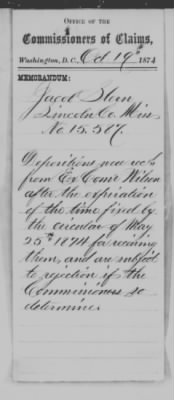 OFFICE OF THE
Commissioners of Claims,
Washington, D. C., Oct 19th 1874
MEMORANDUM:
Jacob Stern
Lincoln Co Miss
No. 15.587.
Depositions were recd
from Ex Comr Wilson
after the expiration
of the time fixed by
the circular of May
25th 1874 for receiving
them, and are subject
to rejection if the
Commissioners so
determine.